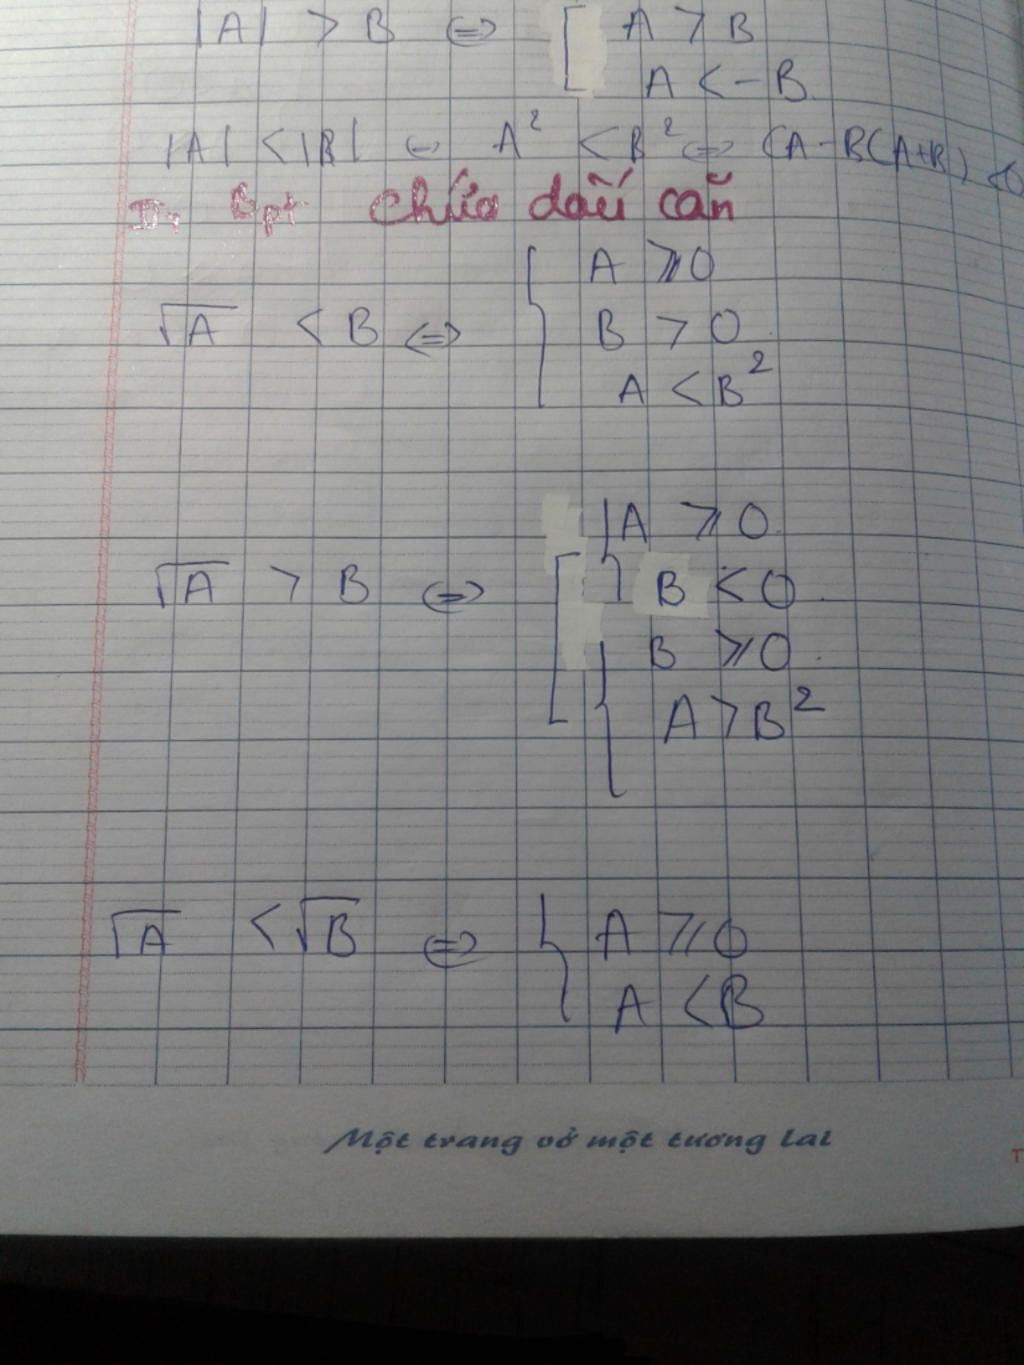 |A| > B ⇔ [ A > B
A < - B
|A| < |B| ⇔ A² < B² ⇔ (A - B(A+B) < 0
II, Bpt chứa dấu căn
√A < B ⇔ { A ⩾ 0
B > 0
A < B²
√A > B ⇔ [ { A ⩾ 0
B < 0
{ B ⩾ 0
A > B²
√A < √B ⇔ { A ⩾ 0
A < B
Một trang vở một tương lai
T